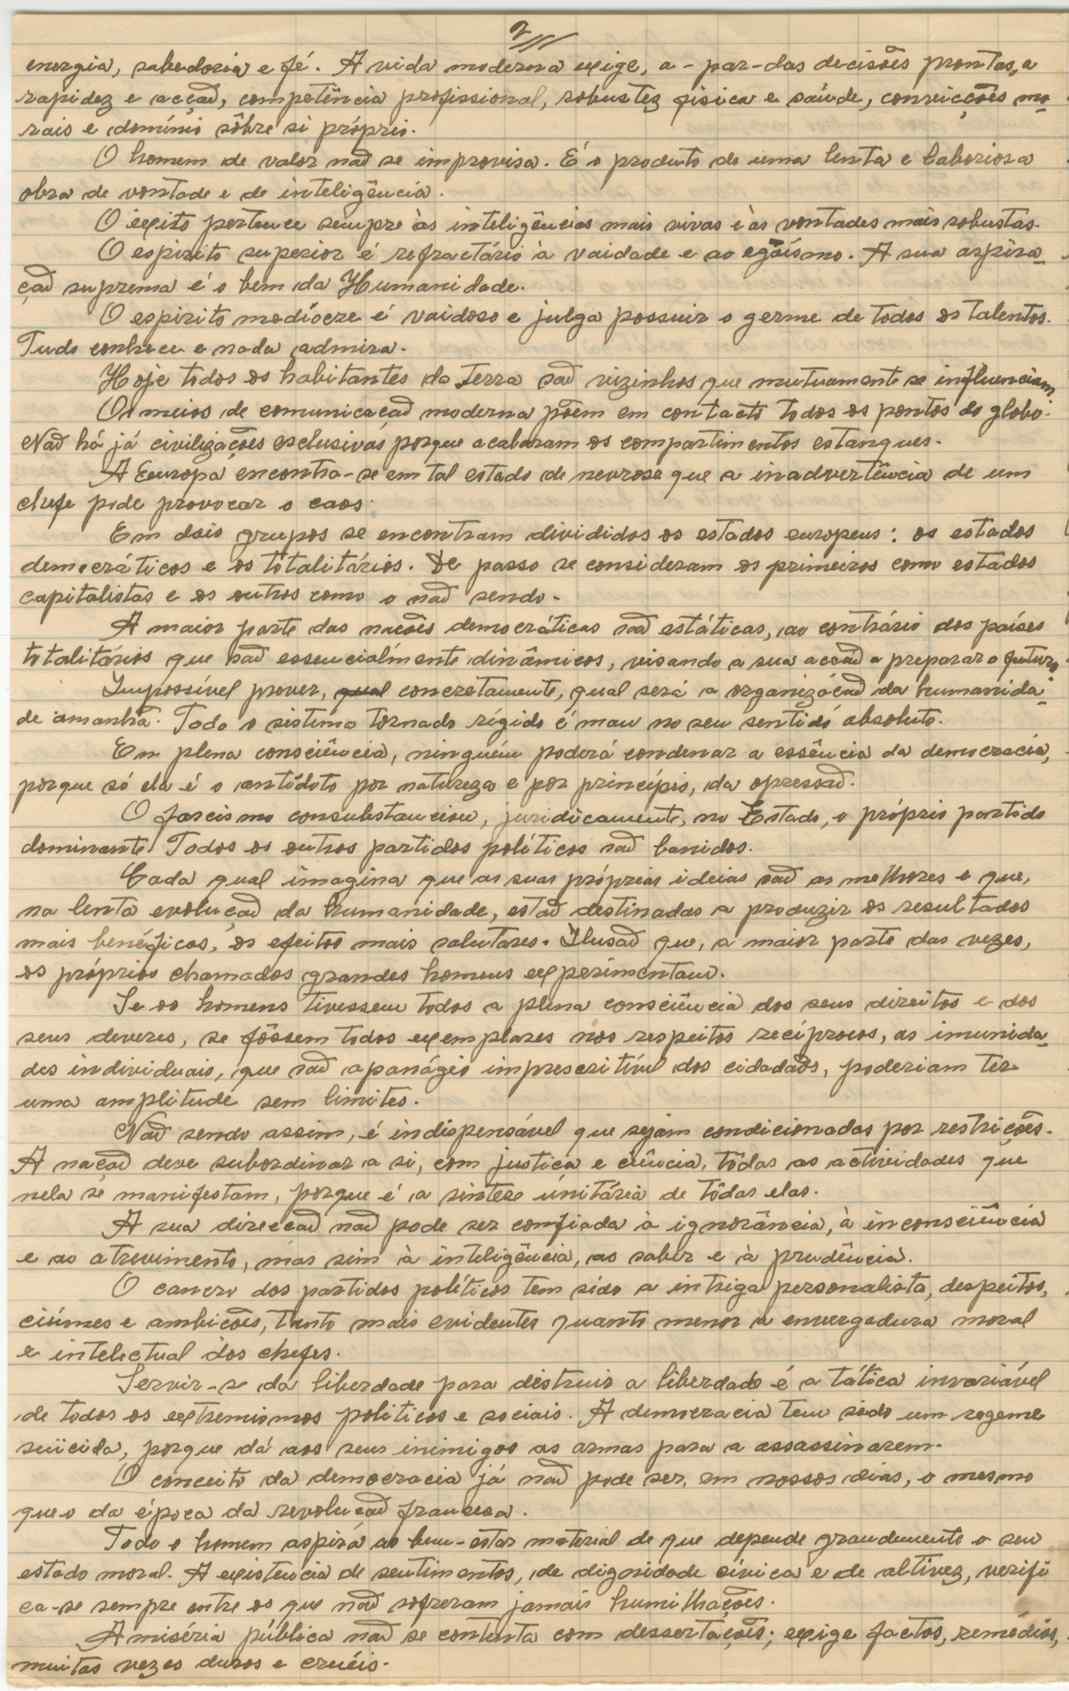 2
energia, sabedoria e fé. A vida moderna exige, a-par-das decisões prontas, a
rapidez e acção, competência profissional, robustez fisica e saúde, convicções mo-
rais e domínio sôbre si próprio.
O homem de valor não se improvisa. É o produto de uma lenta e laboriosa
obra de vontade e de inteligência.
O exito pertence sempre às inteligências mais vivas e às vontades mais robustas.
O espirito superior é refractário à vaidade e ao egoísmo. A sua aspira-
ção suprema é o bem da Humanidade.
O espirito medíocre é vaidoso e julga possuir o germe de todos os talentos.
Tudo conhece e nada admira.
Hoje todos os habitantes da Terra são vizinhos que mutuamente se influenciam.
Os meios de comunicação moderna põem em contacto todos os pontos do globo.
Não há já civilizações exclusivas porque acabaram os compartimentos estanques.
A Europa encontra-se em tal estado de nevrose que a inadvertência de um
chefe pode provocar o caos.
Em dois grupos se encontram divididos os estados europeus: os estados
democráticos e os totalitários. De passo se consideram os primeiros como estados
capitalistas e os outros como o não sendo.
A maior parte das nacões democráticas são estáticas, ao contrário dos países
totalitários que são essencialmente dinâmicos, visando a sua acção a preparar o futuro.
Impossível prever, qual concretamente, qual será a organização da humanida-
de àmanhã. Todo o sistema tornado rígido é mau no seu sentido absoluto.
Em plena consciência, ninguém poderá condenar a essência da democracia,
porque só ela é o antídoto por natureza e por princípio, da opressão.
O fascismo consubstanciou, juridicamente, no Estado, o próprio partido
dominante. Todos os outros partidos políticos são banidos.
Cada qual imagina que as suas próprias ideias são as melhores e que,
na lenta evolução da humanidade, estão destinadas a produzir os resultados
mais benéficos, os efeitos mais salutares. Ilusão que, a maior parte das vezes,
os próprios chamados grandes homens experimentam.
Se os homens tivessem todos a plena consciência dos seus direitos e dos
seus deveres, se fôssem todos exemplares nos respeitos recíprocos, as imunida-
des individuais, que são apanágio imprescritível dos cidadãos, poderiam ter
uma amplitude sem limites.
Não sendo assim, é indispensável que sejam condicionadas por restrições.
A nação deve subordinar a si, com justiça e ciência, tôdas as actividades que
nela se manifestam, porque é a síntese únitária de tôdas elas.
A sua direcção não pode ser confiada à ignorância, à inconsciência
e ao atrevimento, mas sim à inteligência, ao saber e à prudência.
O cancro dos partidos políticos tem sido a intriga personalista, despeitos,
ciúmes e ambições, tanto mais evidentes quanto menor a envergadura moral
e intelectual dos chefes.
Servir-se da liberdade para destruir a liberdade é a tática invariável
de todos os extremismos políticos e sociais. A democracia tem sido um regeme
suicida, porque dá aos seus inimigos as armas para a assassinarem.
O conceito da democracia já não pode ser, em nossos dias, o mesmo
que o da época da revolução francesa.
Todo o homem aspira ao bem-estar material de que depende grandemente o seu
estado moral. A existência de sentimentos, de dignidade cívica e de altivez, verifi
ca-se sempre entre os que não sofreram jamais humilhações.
A miséria pública não se contenta com dessertações; exige factos, remédios,
muitas vezes duros e cruéis.